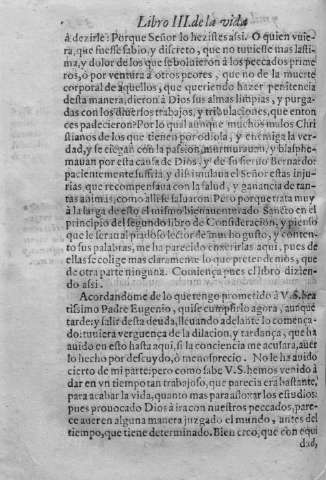 Libro III. de la vida
à dezirle: Porque Señor lo hezistes assi. O quien vuie-
ra, que fuesse sabio, y discreto, que no tuuiesse mas lasti-
ma, y dolor de los que se boluieron à los peccados prime
ros, ò por ventura à otros peores, que no de la muerte
corporal de aquellos, que queriendo hazer penitencia
desta manera, dieron à Dios sus almas limpias, y purga-
das con los diuersos trabajos, y tribulaciones, que enton
ces padecieron? Por lo qual aunque muchos malos Chri
stianos de los que tienen por odiosa, y enemiga la ver-
dad, y se ciegan con la passion, murmurauan, y blasphe-
mauan por esta causa de Dios, y de su sieruo Bernardo:
pacientemente sufria, y dissimulaua el Señor estas inju-
rias que recompensaua con la salud, y ganancia de tan-
tas animas, como alli se saluaron. Pero porque trata muy
à la larga de esto el mismo bienauenturado Sancto en el
principio del segundo libro de Consideracion, y pienso
que le sera al piadoso lector de mucho gusto, y conten-
to sus palabras, me ha parecido enxerirlas aqui, pues de
ellas se colige mas claramente lo que pretendemos, que
de otra parte ninguna. Comiença pues el libro dizien-
do assi.
Acordandome de lo que tengo prometido à V. S. bea
tissimo Padre Eugenio, quise cumplirlo agora, aunque
tarde: y salir desta deuda, lleuando adelante lo començá-
do: tuuiera verguença de la dilacion, y tardança, que ha
auido en esto hasta aqui, si la conciencia me acusara, auer
lo hecho por descuydo, ò menosprecio. No le ha auido
cierto de mi parte: pero como sabe V. S. hemos venido à
dar en vn tiempo tan trabajoso, que parecia era bastante,
para acabar la vida, quanto mas para afloxar los estudios:
pues prouocado Dios à ira con nuestros peccados, pare-
ce auer en alguna manera juzgado el mundo, antes del
tiempo, que tiene determinado. Bien creo, que con equi
dad,